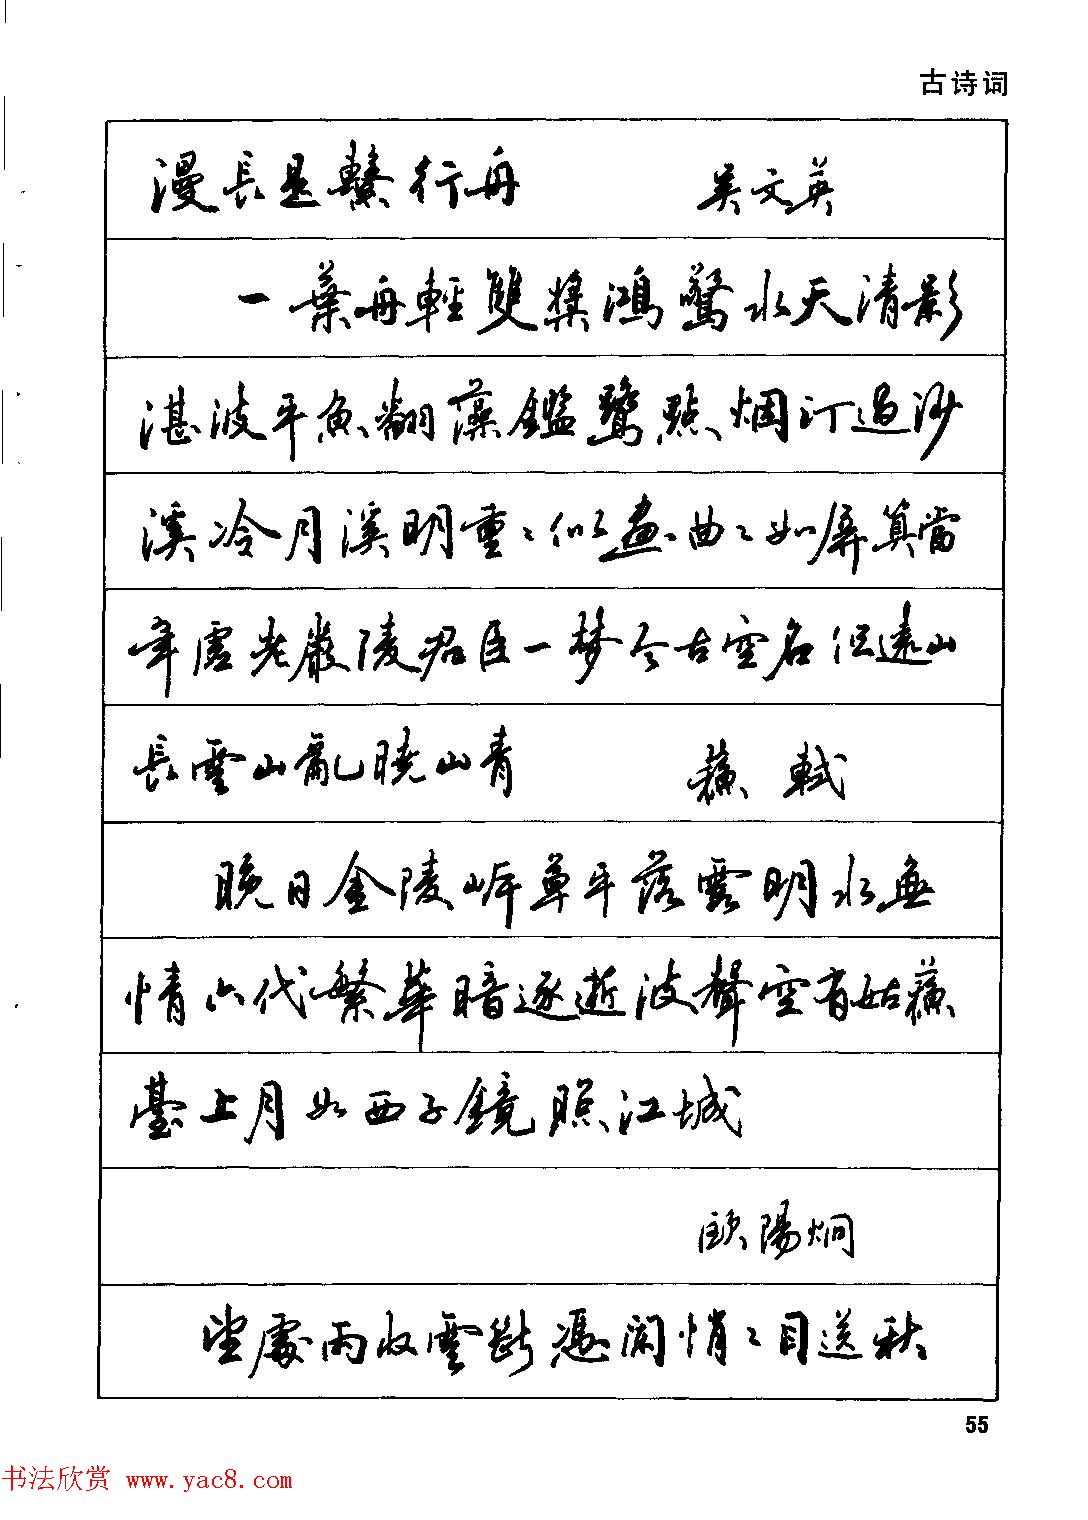 古诗词
漫長是繫行舟 吳文英
一葉舟輕雙槳鴻驚水天清影
湛波平魚翻藻鑑鷺點烟汀過沙
溪冷月溪明重〻似畫曲〻如屏算當
年虛老嚴陵君臣一梦今古空名但遠山
長雲山亂曉山青 蘇軾
晚日金陵岸草平落霞明水無
情六代繁華暗逐逝波聲空有姑蘇
臺上月如西子鏡照江城
歐陽炯
望處雨收雲斷憑闌悄〻目送秋
55
书法欣赏 www.yac8.com